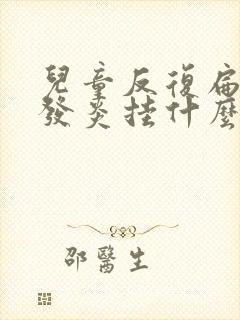 兒童反復扁
發炎挂什麼
邵醫生